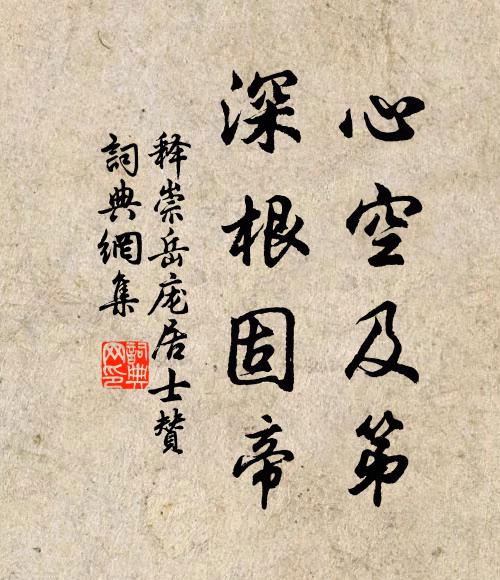 心空及第
深根固帝
释崇岳庞居士赞
詞典網集
詞典网印